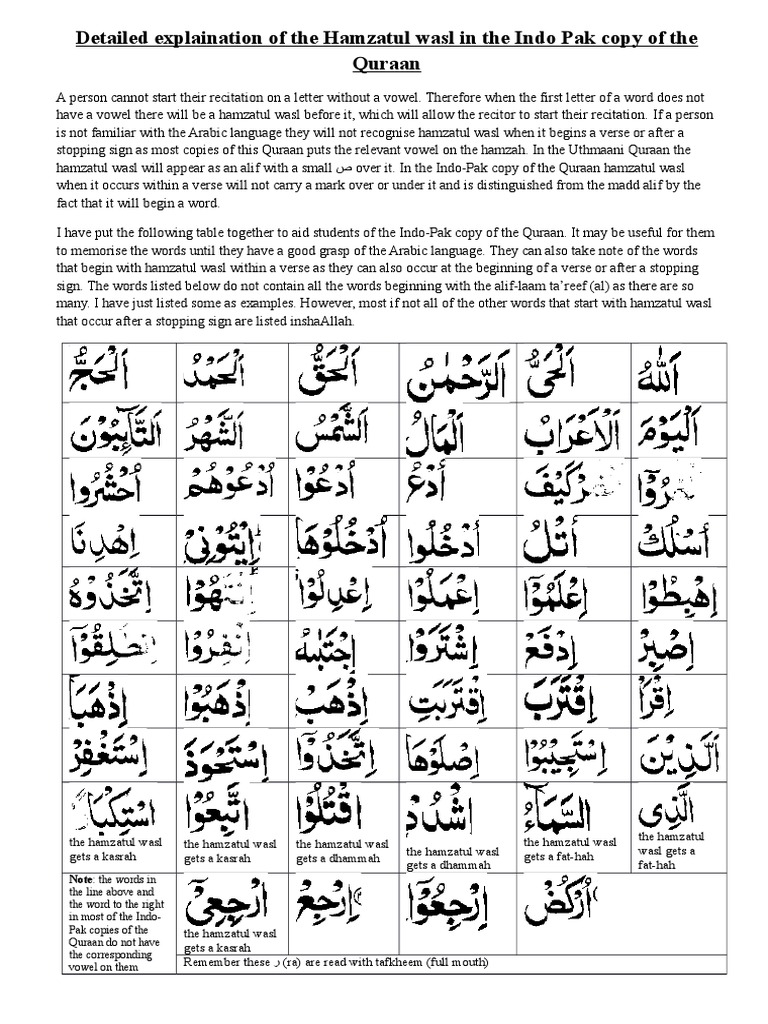 Detailed explaination of the Hamzatul wasl in the Indo Pak copy of the
Quraan
A person cannot start their recitation on a letter without a vowel. Therefore when the first letter of a word does not
have a vowel there will be a hamzatul wasl before it, which will allow the recitor to start their recitation. If a person
is not familiar with the Arabic language they will not recognise hamzatul wasl when it begins a verse or after a
stopping sign as most copies of this Quraan puts the relevant vowel on the hamzah. In the Uthmaani Quraan the
hamzatul wasl will appear as an alif with a small ص over it. In the Indo-Pak copy of the Quraan hamzatul wasl
when it occurs within a verse will not carry a mark over or under it and is distinguished from the madd alif by the
fact that it will begin a word.
I have put the following table together to aid students of the Indo-Pak copy of the Quraan. It may be useful for them
to memorise the words until they have a good grasp of the Arabic language. They can also take note of the words
that begin with hamzatul wasl within a verse as they can also occur at the beginning of a verse or after a stopping
sign. The words listed below do not contain all the words beginning with the alif-laam ta’reef (al) as there are so
many. I have just listed some as examples. However, most if not all of the other words that start with hamzatul wasl
that occur after a stopping sign are listed inshaAllah.
اَللّٰهُ اَلْحَىُّ اَلرَّحْمٰنُ اَلْحَقُّ اَلْحَمْدُ اَلْحَجُّ
اَلْيَوْمَ اَلْاَعْرَابُ اَلْمَالُ اَلشَّمْسُ اَلشَّهْرُ اَلتَّآئِبُوْنَ
اُدْعُ اُدْعُوْا اُدْعُوْهُمْ اُحْشُرُوا
اُسْلُكْ اُتْلُ ادْخُلُوا ادْخُلُوْهَا اِيْتُوْنِىْ اِهْدِنَا
اِهْبِطُوْا اِعْلَمُوْۤا اِعْمَلُوْا اِعْدِلُوْا اِنْتَهُوْا اِتَّخَذُوْهُ
اِصْبِرْ اِدْفَعْ اِشْتَرَوْا اِجْتَبٰىهُ اِنْفِرُوْا اِنْطَلِقُوْۤا
اِقْرَاْ اِقْتَرَبَ اِقْتَرَبَتِ اِذْهَبْ اِذْهَبُوْا اِذْهَبَا
اَلَّذِيْنَ اِسْتَجِيْبُوْا اِصْلَوْهَا اِتَّخَذُوْۤا اِسْتَحْوَذَ اِسْتَغْفِرْ
الَّذِى السَّمَآءُ اشْدُدْ اقْتُلُوْا اتَّبِعُوْا اسْتِكْبَارًا
the hamzatul wasl gets a kasrah
the hamzatul wasl gets a kasrah
the hamzatul wasl gets a dhammah
the hamzatul wasl gets a dhammah
the hamzatul wasl gets a fat-hah
the hamzatul wasl gets a fat-hah
Note: the words in
the line above and
the word to the right
in most of the Indo-
Pak copies of the
Quraan do not have
the corresponding
vowel on them
اُرْكُضْ اِرْجِعُوْۤا اِرْجِعْ ارْجِعِىْۤ
the hamzatul wasl
gets a kasrah
Remember these ر (ra) are read with tafkheem (full mouth)